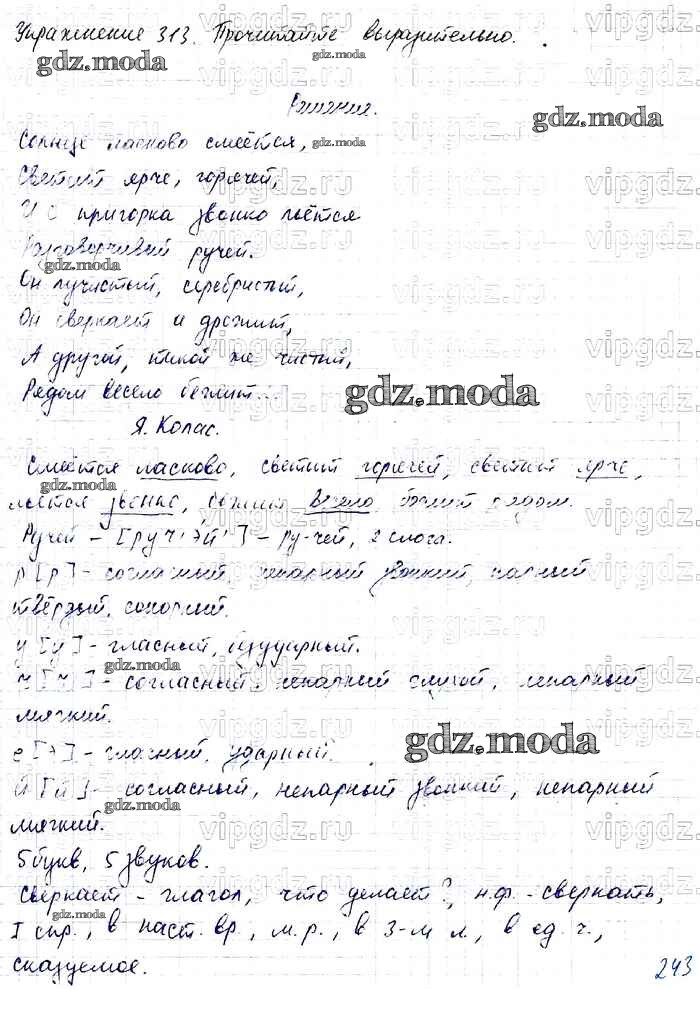 Упражнение 313. Прочитайте выразительно.
gdz.moda
gdz.moda
Солнце ласково смеётся,
Светит ярче, горячей,
И с пригорка звонко льётся
Разговорчивый ручей.
gdz.moda
Он лучистый, серебристый,
Он сверкает и дрожит,
А другой, такой же чистый,
Рядом весело бежит...
gdz.moda
Я. Колас.
Смеётся ласково, светит горячей, светит ярче,
льётся звонко, бежит весело, бежит рядом.
gdz.moda
Ручей – [руч'эй'] – ру-чей, 2 слога.
р [р] – согласный, непарный звонкий, парный
твёрдый, сонорный.
у [у] – гласный, безударный.
gdz.moda
ч [ч'] – согласный, непарный глухой, непарный
мягкий.
gdz.moda
е [э] – гласный, ударный.
й [й'] – согласный, непарный звонкий, непарный
gdz.moda
мягкий.
5 букв, 5 звуков.
Сверкает – глагол, что делает?, н.ф. – сверкать,
gdz.moda
I спр., в наст. вр., м.р., в 3-м л., в ед. ч.,
сказуемое.
243
vipgdz.ru